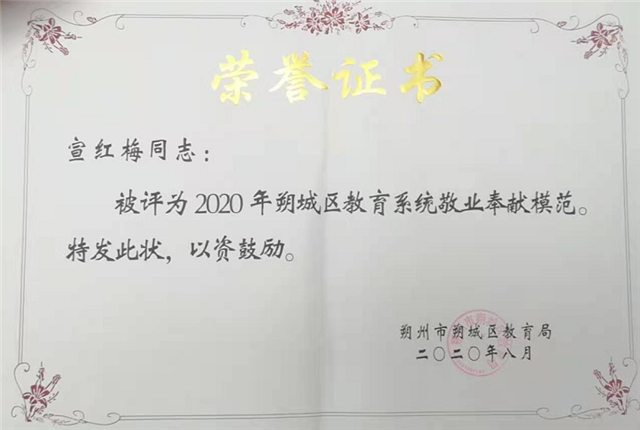 荣誉证书
宣红梅同志：
被评为2020年朔城区教育系统敬业奉献模范。
特发此状，以资鼓励。
朔州市朔城区教育局
二〇二〇年八月